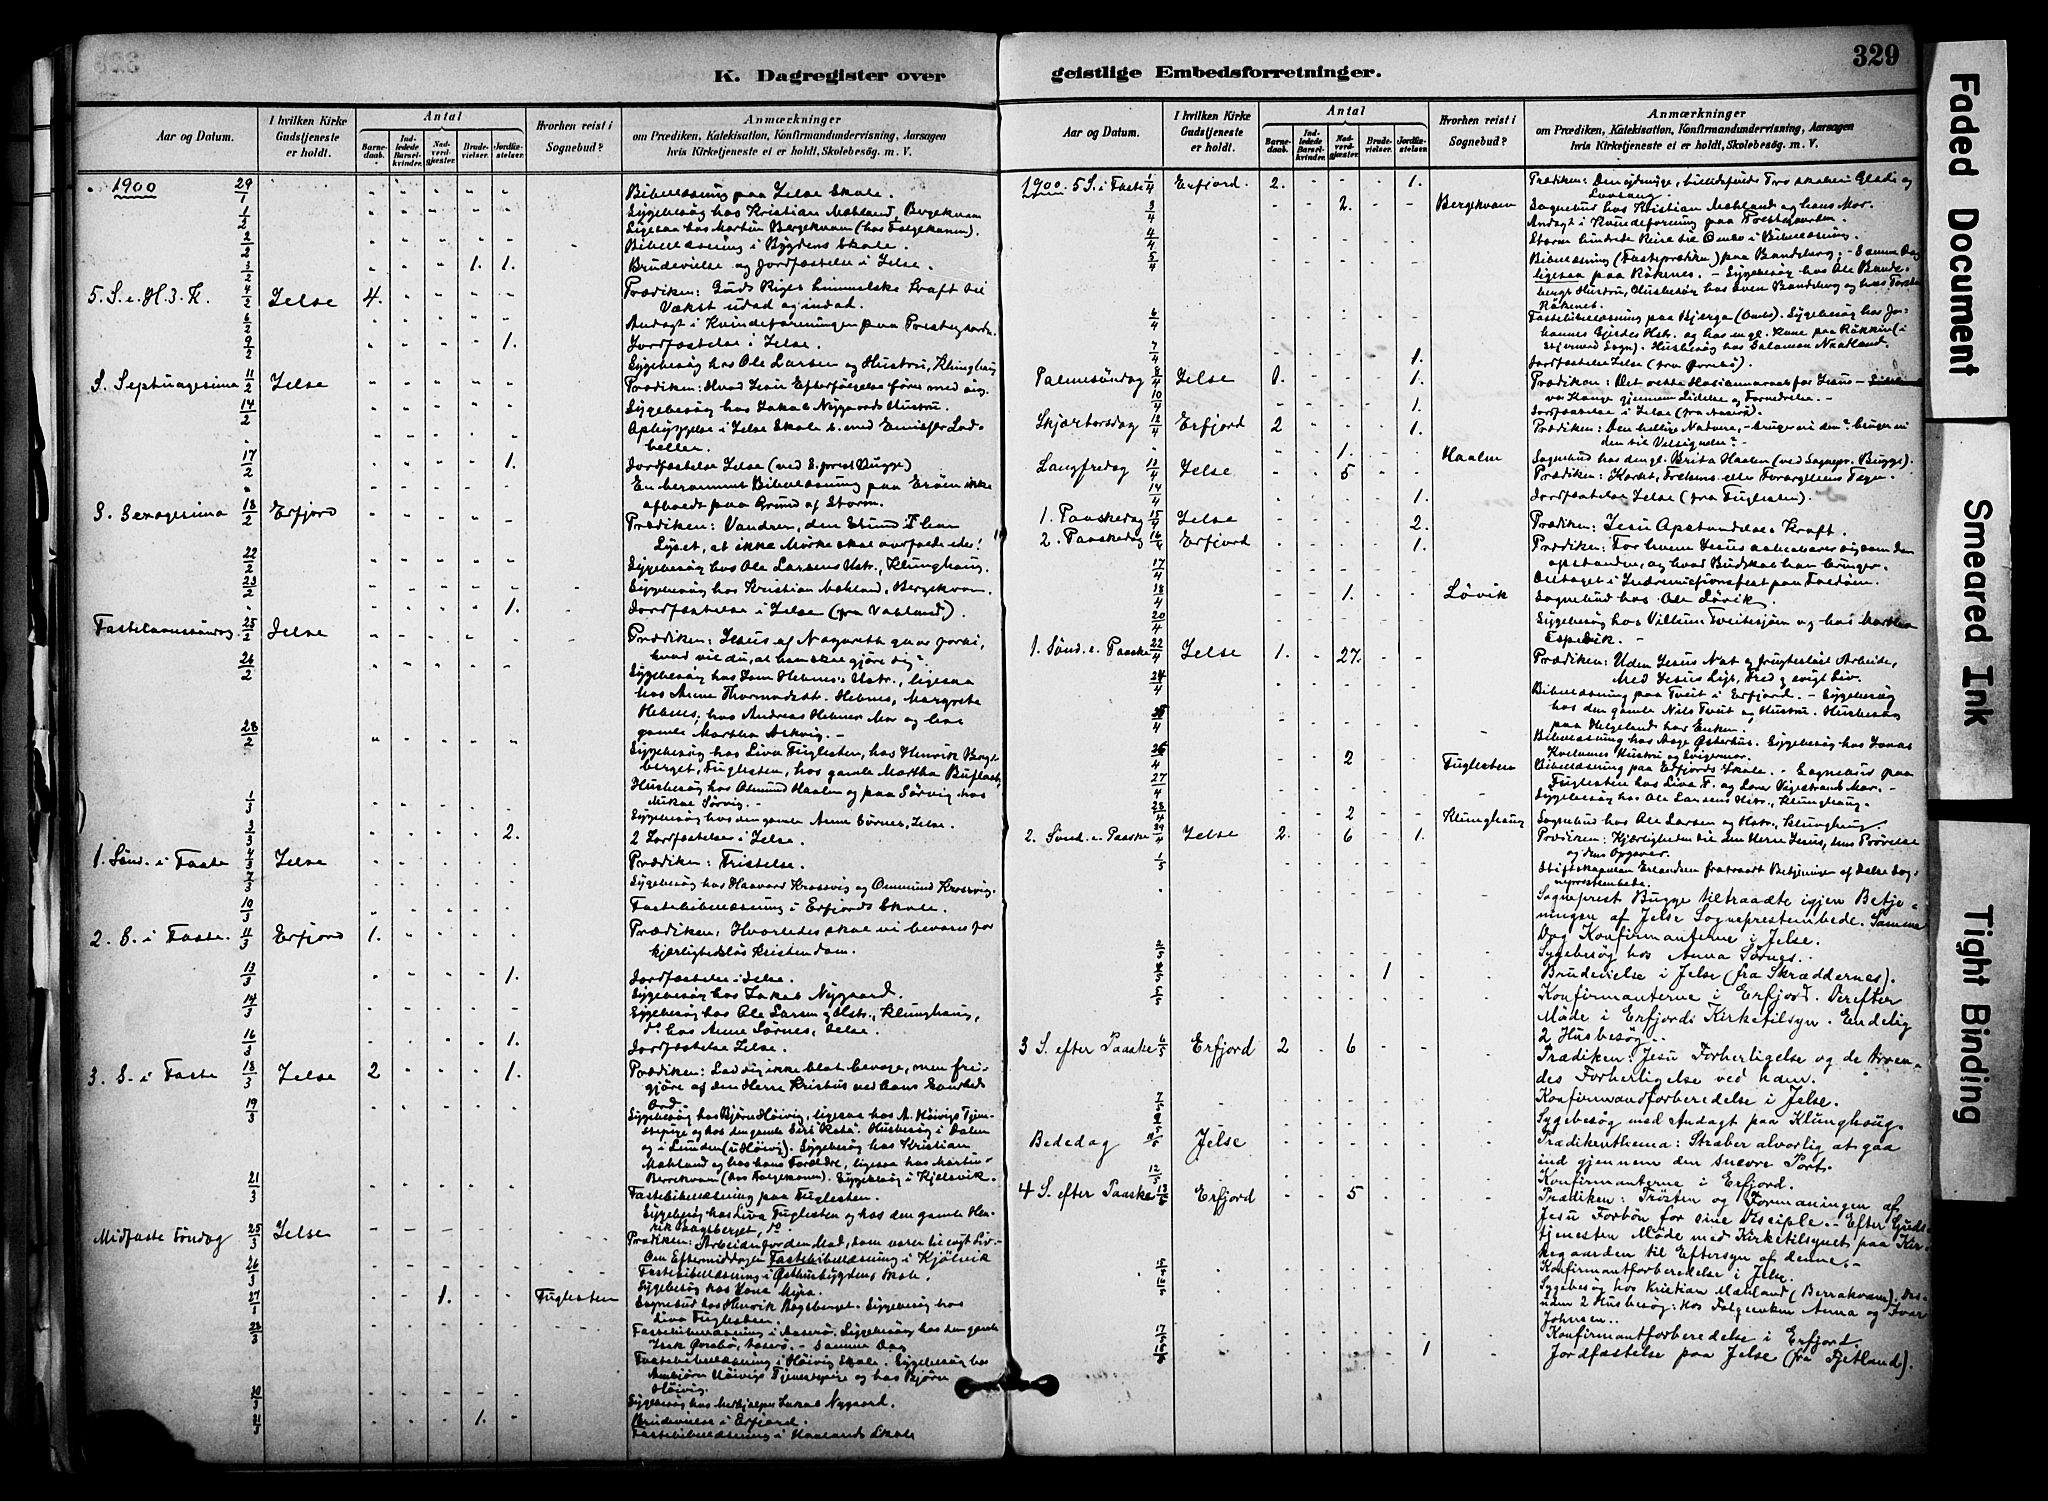 329
K. Dagregister over geistlige Embedsforretninger.
Aar og Datum.
I hvilken Kirke Gudstjeneste er holdt.
Antal
Barnedaab.
Indledede Barselkvinder.
Nadverdgjæster.
Brudevielser.
Jordfæstelser.
Hvorhen reist i Sognebud?
Anmærkninger
om Prædiken, Katekisation, Konfirmandundervisning, Aarsagen
hvis Kirketjeneste ei er holdt, Skolebesøg. m. V.
1900 29/1 Bibellæsning paa Jelse Skole.
1/2 Sygebesøg hos Kristian Mæhland, Bergekvam
Ligesaa hos Martin Bergekvam (hos Følgekonen).
2/2 Bibellæsning i Bygdens Skole.
3/2 1. 1. Brudevielse og Jordfæstelse i Jelse.
5. S. e. H. 3. K. 4/2 Jelse 4. Prædiken: Guds Riges himmelske Kraft til
Vækst udad og indad.
6/2 Andagt i Kvindeforeningen paa Prestegaarden
9/2 1. Jordfæstelse i Jelse.
Sygebesøg hos Ole Larsen og Hustru, Klunghaug
S. Septuagesima 11/2 Jelse Prædiken: Hvad Jesu Efterfølgelse fører med sig.
14/2 Sygebesøg hos Jakob Nygaards Hustru.
Opbyggelse i Jelse Skole s. med Emissær Lod-
17/2 1. Jordfæstelse Jelse (ved S.prest Bugge)
En berammet Bibellæsning paa Erøen ikke
afholdt paa Grund af Storm.
S. Sexagesima 18/2 Erfjord Prædiken: Vandrer, den Stund I har
Lyset, at ikke Mørke skal overfalde eder!
22/2 Sygebesøg hos Ole Larsens Hstr., Klunghaug.
23/2 Sygebesøg hos Kristian Mæhland, Bergekvam.
1. Jordfæstelse i Jelse (fra Vatland).
Fastelavnssøndag 25/2 Jelse Prædiken: Jesus af Nazareth gaar forbi,
hvad vil du, at han skal gjøre dig?
26/2 Sygebesøg hos Hebnes' Hstr., ligesaa
hos Anne Thormodsdtr. Hebnes, Margreta
Hebnes, hos Andreas Hebnes Mor og hos
gamle Martha Askvig.
28/2 Sygebesøg hos Liva Fuglesten, hos Henrik Bergs-
berget, Fuglesten, hos gamle Martha
Husbesøg hos Osmund Haalen og paa Sørvig hos
Mikal Sørvig.
1/3 Sygebesøg hos den gamle Anne Sørnes, Jelse.
3/3 2. 2 Jordfæstelser i Jelse.
1. Sønd. i Faste 4/3 Jelse Prædiken: Fristelse.
7/3 Sygebesøg hos Haavard Krossvig og Ommund Krossvig.
10/3 Fastebibellæsning i Erfjords Skole.
2. S. i Faste. 11/3 Erfjord 1. Prædiken: Hvorledes skal vi bevares for
kjærlighedsløs Kristendom.
13/3 1. Jordfæstelse i Jelse.
Sygebesøg hos Jakob Nygaard.
14/3 Sygebesøg hos Ole Larsen og Hstr., Klunghaug,
do. hos Anne Sørnes, Jelse.
16/3 1. Jordfæstelse Jelse.
3. S. i Faste 18/3 Jelse 2 1. Prædiken: Lad dig ikke blot bevæge, men fri-
gjøre af den Herre Kristus ved hans Sandheds
Ord.
19/3 Sygebesøg hos Bjørn Høivig, ligesaa hos A. Høivigs Tjene-
stepige og hos den gamle Husbesøg i Dalen
og i Lunden (u. Høivig). Sygebesøg hos Kristian
Mæhland og hos hans Forældre, ligesaa hos Martin
Berrekvam (hos Følgekonen). Sygebesøg i Kjølevik.
21/3 Fastebibellæsning paa Fuglesten.
Sygebesøg hos Liva Fuglesten og hos den gamle Hen-
rik Bogsberget, do
Midfaste Søndag 25/3 Jelse Prædiken: Arbeider for den Mad, som varer til evigt Liv.
Om Eftermiddagen Fastebibellæsning i Kjølevik
26/3 Fastebibellæsning i Østhusbygdens Skole.
Sygebesøg hos Myra.
27/3 1. Fuglesten Sognebud hos Henrik Bogsberget. Sygebesøg hos
Liva Fuglesten.
28/3 Fastebibellæsning i Aaserø. Sygebesøg hos den gamle
Samme Dag
Fastebibellæsning i Høivig Skole. Sygebesøg hos
Asbjørn Høivigs Tjenestepige og hos Bjørn
Høivig.
30/3 Sygebesøg hos Medhjælper Jakob Nygaard.
31/3 1. Brudevielse i Erfjord.
Fastebibellæsning i Haalands Skole
1900 5 S. i Faste 1/4 Erfjord. 2. 1. Prædiken: Den ydmyge, Tro skaber Glæde og
Lovsang
3/4 2. Bergekvam Sognebud hos Kristian Mæhland og hans Mor.
Andagt i Kvindeforening paa Prestegaarden.
4/4 Storm hindrede Reise til Ombo i Bibellæsning.
5/4 Bibellæsning (Fasteprædiken) paa Bandeberg. - Samme Dag
ligesaa paa Røkenes. - Sygebesøg hos Ole Bande-
bergs Hustru, Husbesøg hos Sven Bandeberg og hos
Røkenes.
6/4 Fastebibellæsning paa Bjerga (Ombo). Sygebesøg hos Jo-
hannes Gjildes Hstr. og hos en gl. Kone paa Røkkin (i
Stjernerø Sogn). Husbesøg hos Salamon Naatland.
7/4 1. Jordfæstelse Jelse
Palmesøndag 8/4 Jelse 1. 1. Prædiken: Det rette Hosiannaraab for Jesus
vor Konge gjennem Lidelse og Fornedrelse. -
10/4 1. Jordfæstelse i Jelse
Skjærtorsdag 12/4 Erfjord 2 1. Prædiken: Den hellige Nadvere, - bruger vi den? bruger vi
den til Velsignelse? -
1. Haalen Sognebud hos den gl. Brita Haalen (ved Sognepr. Bugge).
Langfredag 13/4 Jelse 5 Prædiken: Korset, Frelsens eller Forargelsens Tegn.
14/4 1. Jordfæstelse Jelse (fra Fuglesten).
1. Paaskedag 15/4 Jelse 2. Prædiken: Jesu Opstandelses Kraft.
2. Paaskedag 16/4 Erfjord 1. Prædiken: For hvem Jesus aabenbarer sig som den
opstandne, og hvad Budskab han bringer.
17/4 Deltaget i Indremissionsfest paa Foldøen.
18/4 1. Løvik Sognebud hos Ole Løvik.
20/4 Sygebesøg hos Villum Tveitesjøen og hos Martha
Espevik.
1. Sønd. e. Paaske 22/4 Jelse 1. 27. Prædiken: Uden Jesus Nat og frugtesløst Arbeide,
Med Jesus Lys, Fred og evigt Liv.
24/4 Bibellæsning paa Tveit i Erfjord. - Sygebesøg
hos den gamle Nils Tveit og Hustru. Husbesøg
paa Helgeland hos Enken.
25/4 Bibellæsning hos Aage Østerhus. Sygebesøg hos Jonas
Kvelvnes Hustru og Svigermor.
26/4 2 Fuglesten Bibellæsning paa Erfjords Skole. - Sognebud paa
Fuglesten hos Liva F. og Lars Vigestrands Mor. -
27/4 Sygebesøg hos Ole Larsens Hstr., Klunghaug.
28/4 2 Klunghaug Sognebud hos Ole Larsen og Hstr., Klunghaug
2. Sønd. e. Paaske 29/4 Jelse 2. 6 1. Prædiken: Kjærligheden til den Herre Jesus, dens Prøvelse
og dens Opgaver.
1/5 Stiftskapellan Erlandsen fratraadt Betjeningen af Jelse Sog-
nepræstembede.
Sogneprest Bugge tiltraadte igjen Betje-
ningen af Jelse Sogneprestembede. Samme
Dag Konfirmanterne i Jelse.
2/5 Sygebesøg hos Anna Sørnes.
4/5 1 Brudevielse i Jelse (fra Skræddernes).
5/5 Konfirmanterne i Erfjord. Derefter
Møde i Erfjords Kirketilsyn. Endelig
2 Husbesøg.
3 S. efter Paaske 6/5 Erfjord 2 6 Prædiken: Jesu Forherligelse og de Troen-
des Forherligelse ved ham.
7/5 Konfirmandforberedelse i Jelse.
9/5 Sygebesøg med Andagt paa Klunghoug.
Bededag 11/5 Jelse Prædikenthema: Stræber alvorlig at gaa
ind gjennem den snevre Port.
12/5 Konfirmanterne i Erfjord.
4 S. efter Paaske 13/5 Erfjord 5 Prædiken: Trøsten og Formaningen af
Jesu Forbøn for sine Disciple. - Efter Guds-
tjenesten Møde med Kirketilsynet paa Kir-
kegaarden til Eftersyn af denne. -
15/5 Konfirmantforberedelse i Jelse.
16/5 Sygebesøg hos Kristian Mæhland (Berrakvam). Des-
uden 2 Husbesøg: Hos Følgeenken Anna og Ivar
Johnsen..
17/5 Konfirmantforberedelse i Erfjord.
18/5 1 Jordfæstelse paa Jelse (fra Fjetland).
Faded Document
Smeared Ink
Tight Binding